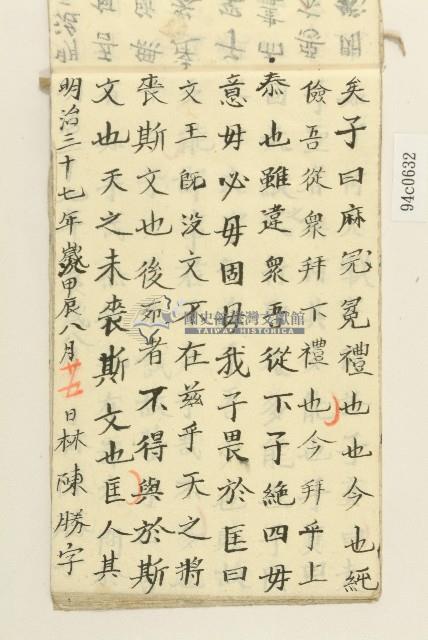 矣子曰麻冕禮也也今也純
儉吾從眾拜下禮也今拜乎上
泰也雖違眾吾從下子絕四毋
意毋必毋固毋我子畏於匡曰
文王既沒文不在茲乎天之將
喪斯文也後死者不得與於斯
文也天之未喪斯文也匡人其
明治三十七年歲次甲辰八月廿五日林陳勝字
國史館臺灣文獻館
TAIWAN HISTORICA
94c0632